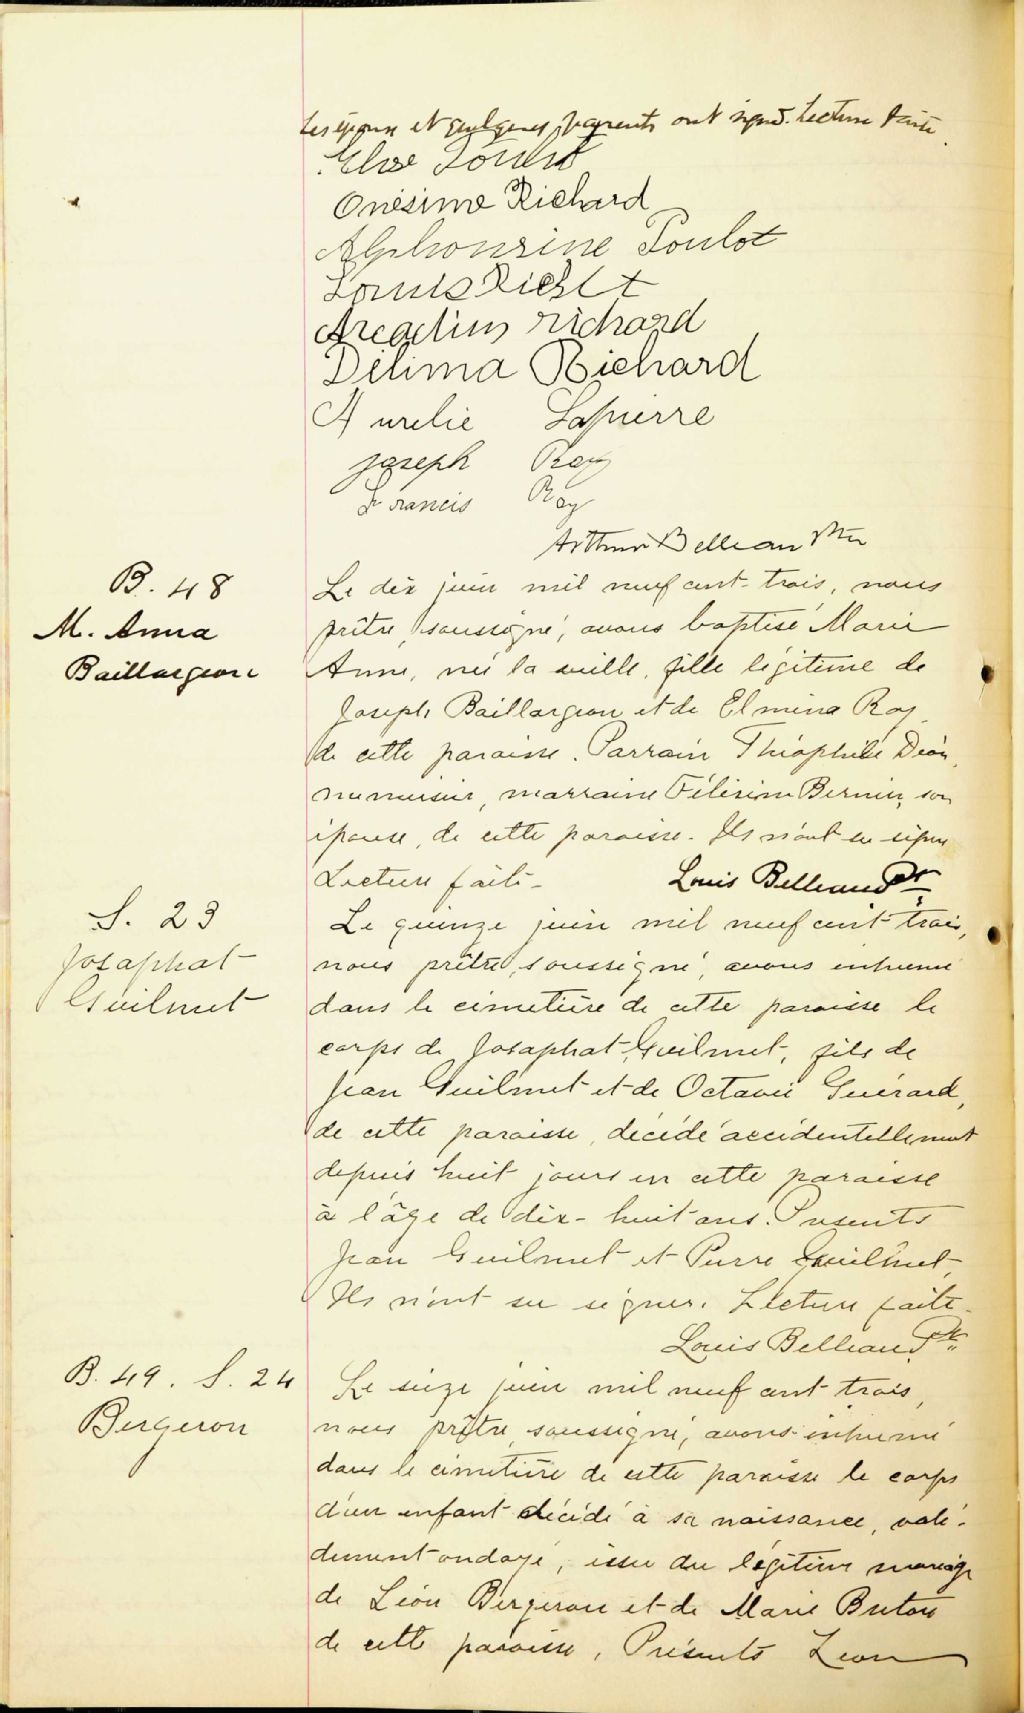 Les époux et quelques parents ont signé. Lecture faite.
Elise Poulot
Onésime Richard
Alphonsine Poulot
Louis
Arcadius richard
Délima Richard
Aurelie Lapierre
joseph Roy
Francis Roy
Arthur Belleau Ptre
B. 48
M. Anna
Baillargeon
Le dix juin mil neuf cent-trois, nous
prêtre, soussigné, avons baptisé Marie
Anne, née la veille, fille légitime de
Joseph Baillargeon et de Elmina Roy
de cette paroisse. Parrain Théophile Dion,
marraine Bernier, son
épouse, de cette paroisse. Ils n'ont su signer
Lecture faite-
Louis Belleau Ptr
S. 23
Josaphat
Guilmet
Le quinze juin mil neuf cent-trois,
nous prêtre, soussigné, avons inhumé
dans le cimetière de cette paroisse le
corps de Josaphat Guilmet, fils de
Jean Guilmet et de Octavie Guérard,
de cette paroisse, décédé accidentellement
depuis huit jours en cette paroisse
à l'âge de dix-huit ans. Présents
Jean Guilmet et Pierre Guilmet,
Ils n'ont su signer. Lecture faite-
Louis Belleau Ptr
B. 49. S. 24
Bergeron
Le seize juin mil neuf cent trois,
nous prêtre, soussigné, avons inhumé
dans le cimetière de cette paroisse le corps
d'un enfant décédé à sa naissance, vali-
dement ondoyé, issu du légitime mariage
de Léon Bergeron et de Marie Breton
de cette paroisse, Présents Léon